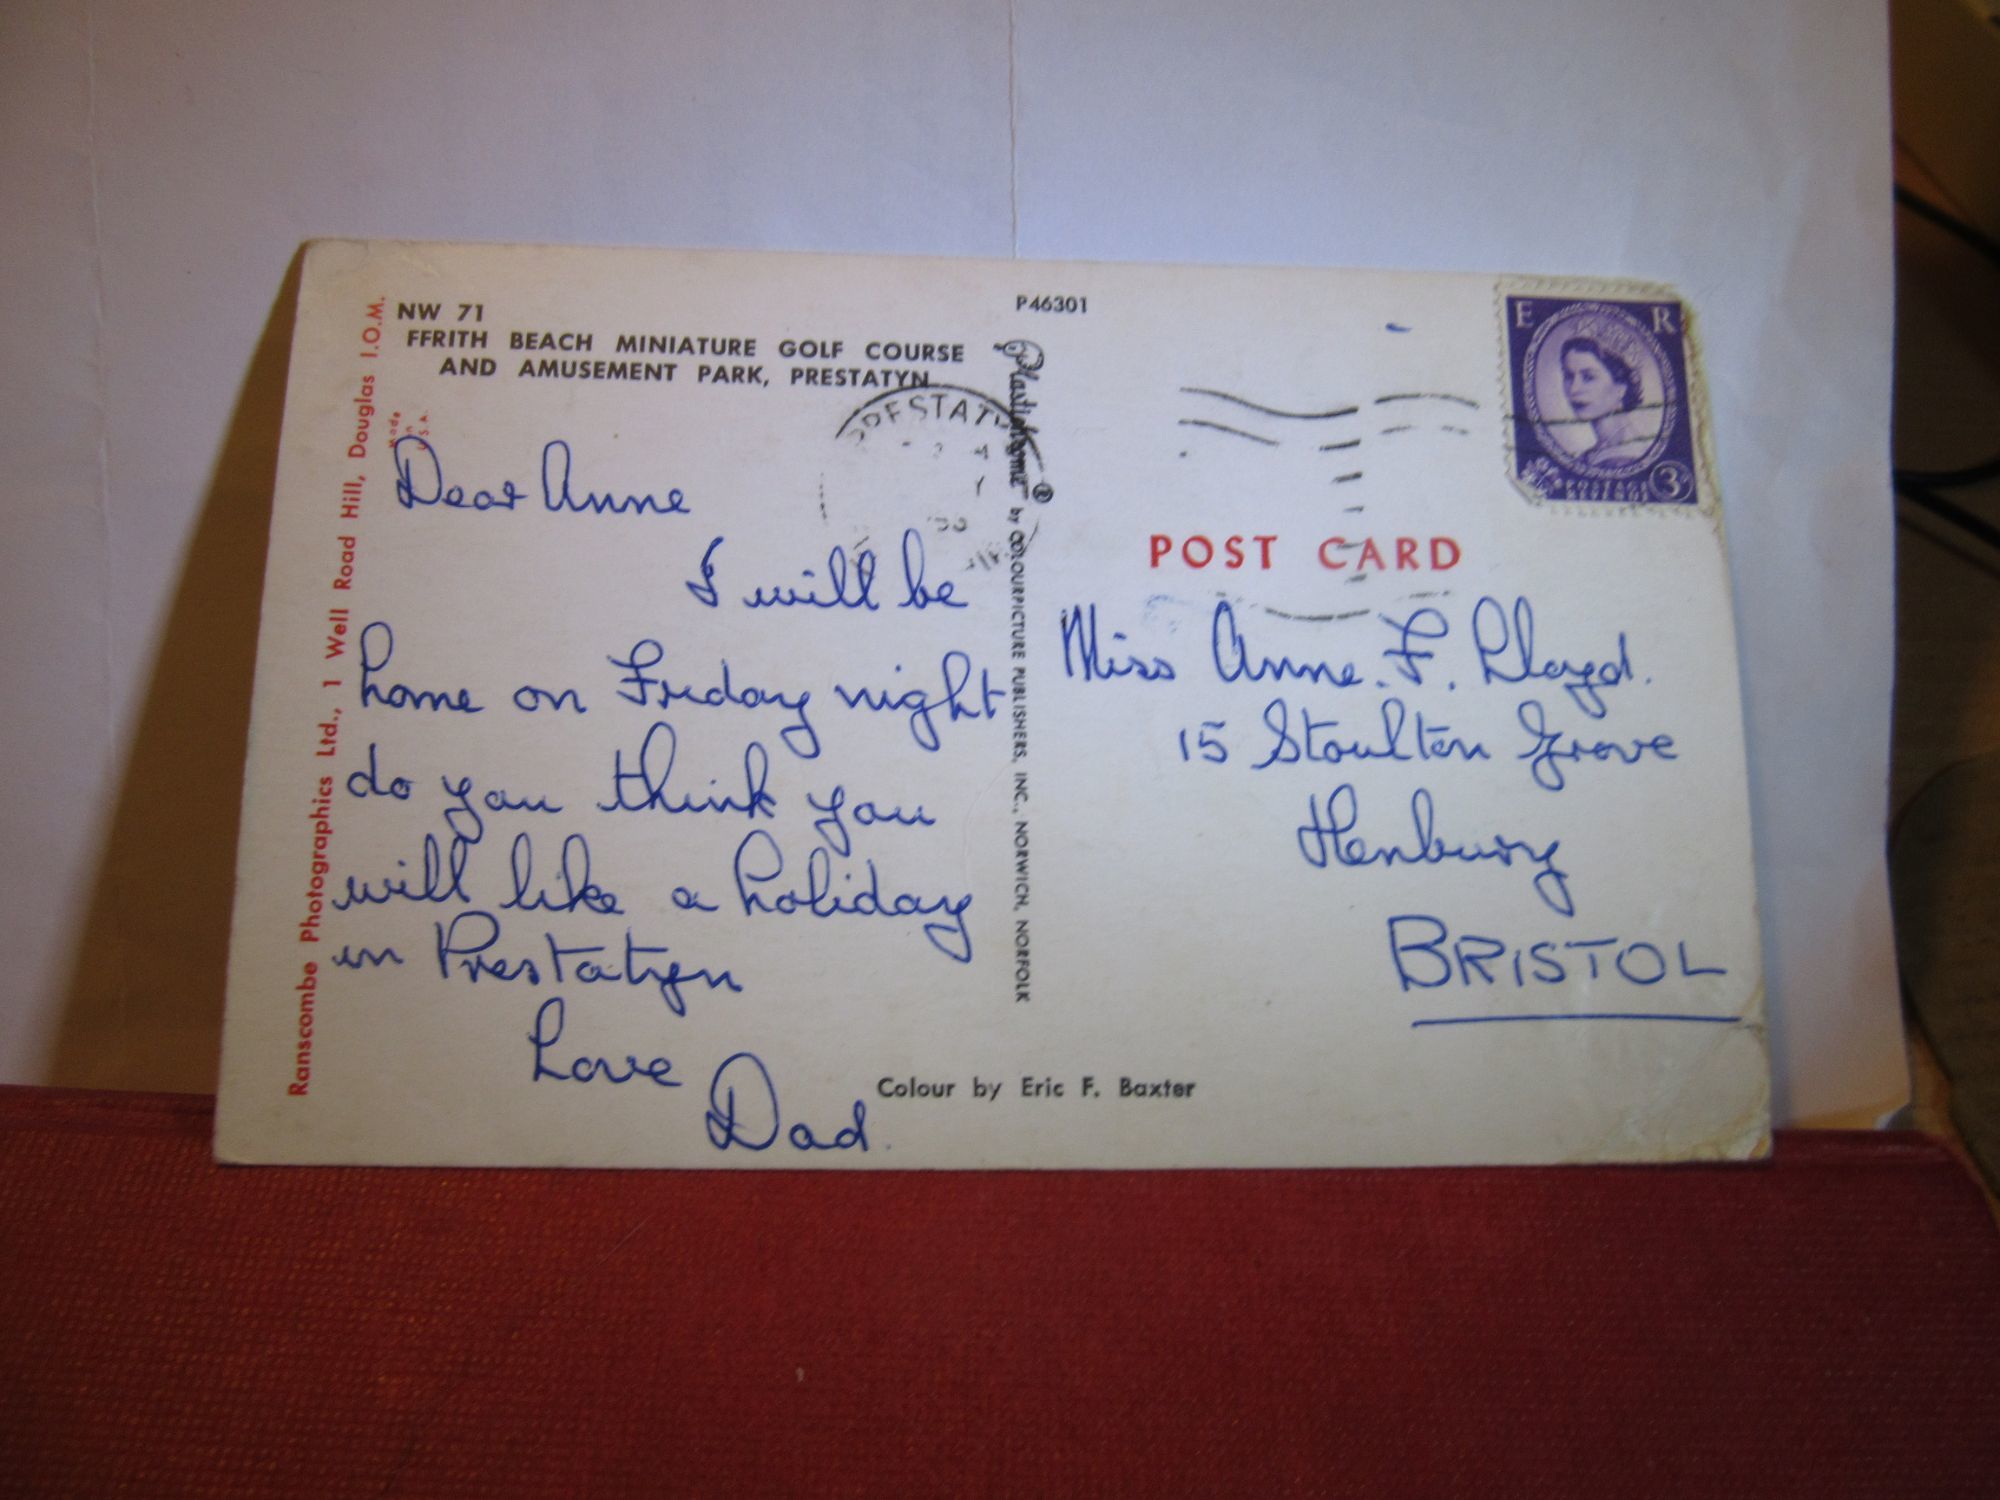 NW 71
FFRITH BEACH MINIATURE GOLF COURSE
AND AMUSEMENT PARK, PRESTATYN
Ranscombe Photographics Ltd., 1 Well Road Hill, Douglas I.O.M.
Made
in
U.S.A.
Dear Anne
I will be
home on Friday night
do you think you
will like a holiday
in Prestatyn
Love
Dad.
P46301
Plastichrome ® by COLOURPICTURE PUBLISHERS, INC., NORWICH, NORFOLK
Colour by Eric F. Baxter
E R
POSTAGE
REVENUE
3D
POST CARD
Miss Anne. F. Lloyd.
15 Stoulton Grove
Henbury
BRISTOL